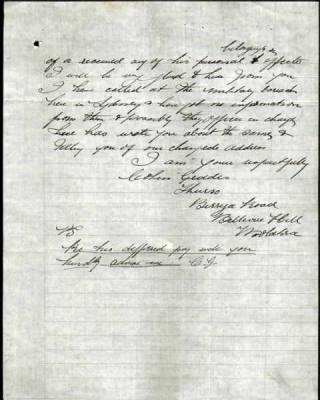 belongings
of a received any of his personal & effects
I will be very glad to hear from you
I have called at the military barracks
here in Sydney & have got no information
from them & possibly the officer in charge
here has wrote you about the same &
telling you of our changed address
I am yours respectfully
Colin Geddes
Thurso
Birriga Road
Bellevue Hill
Woollahra
PS
Re his deffered pay will you
kindly advise me C.G